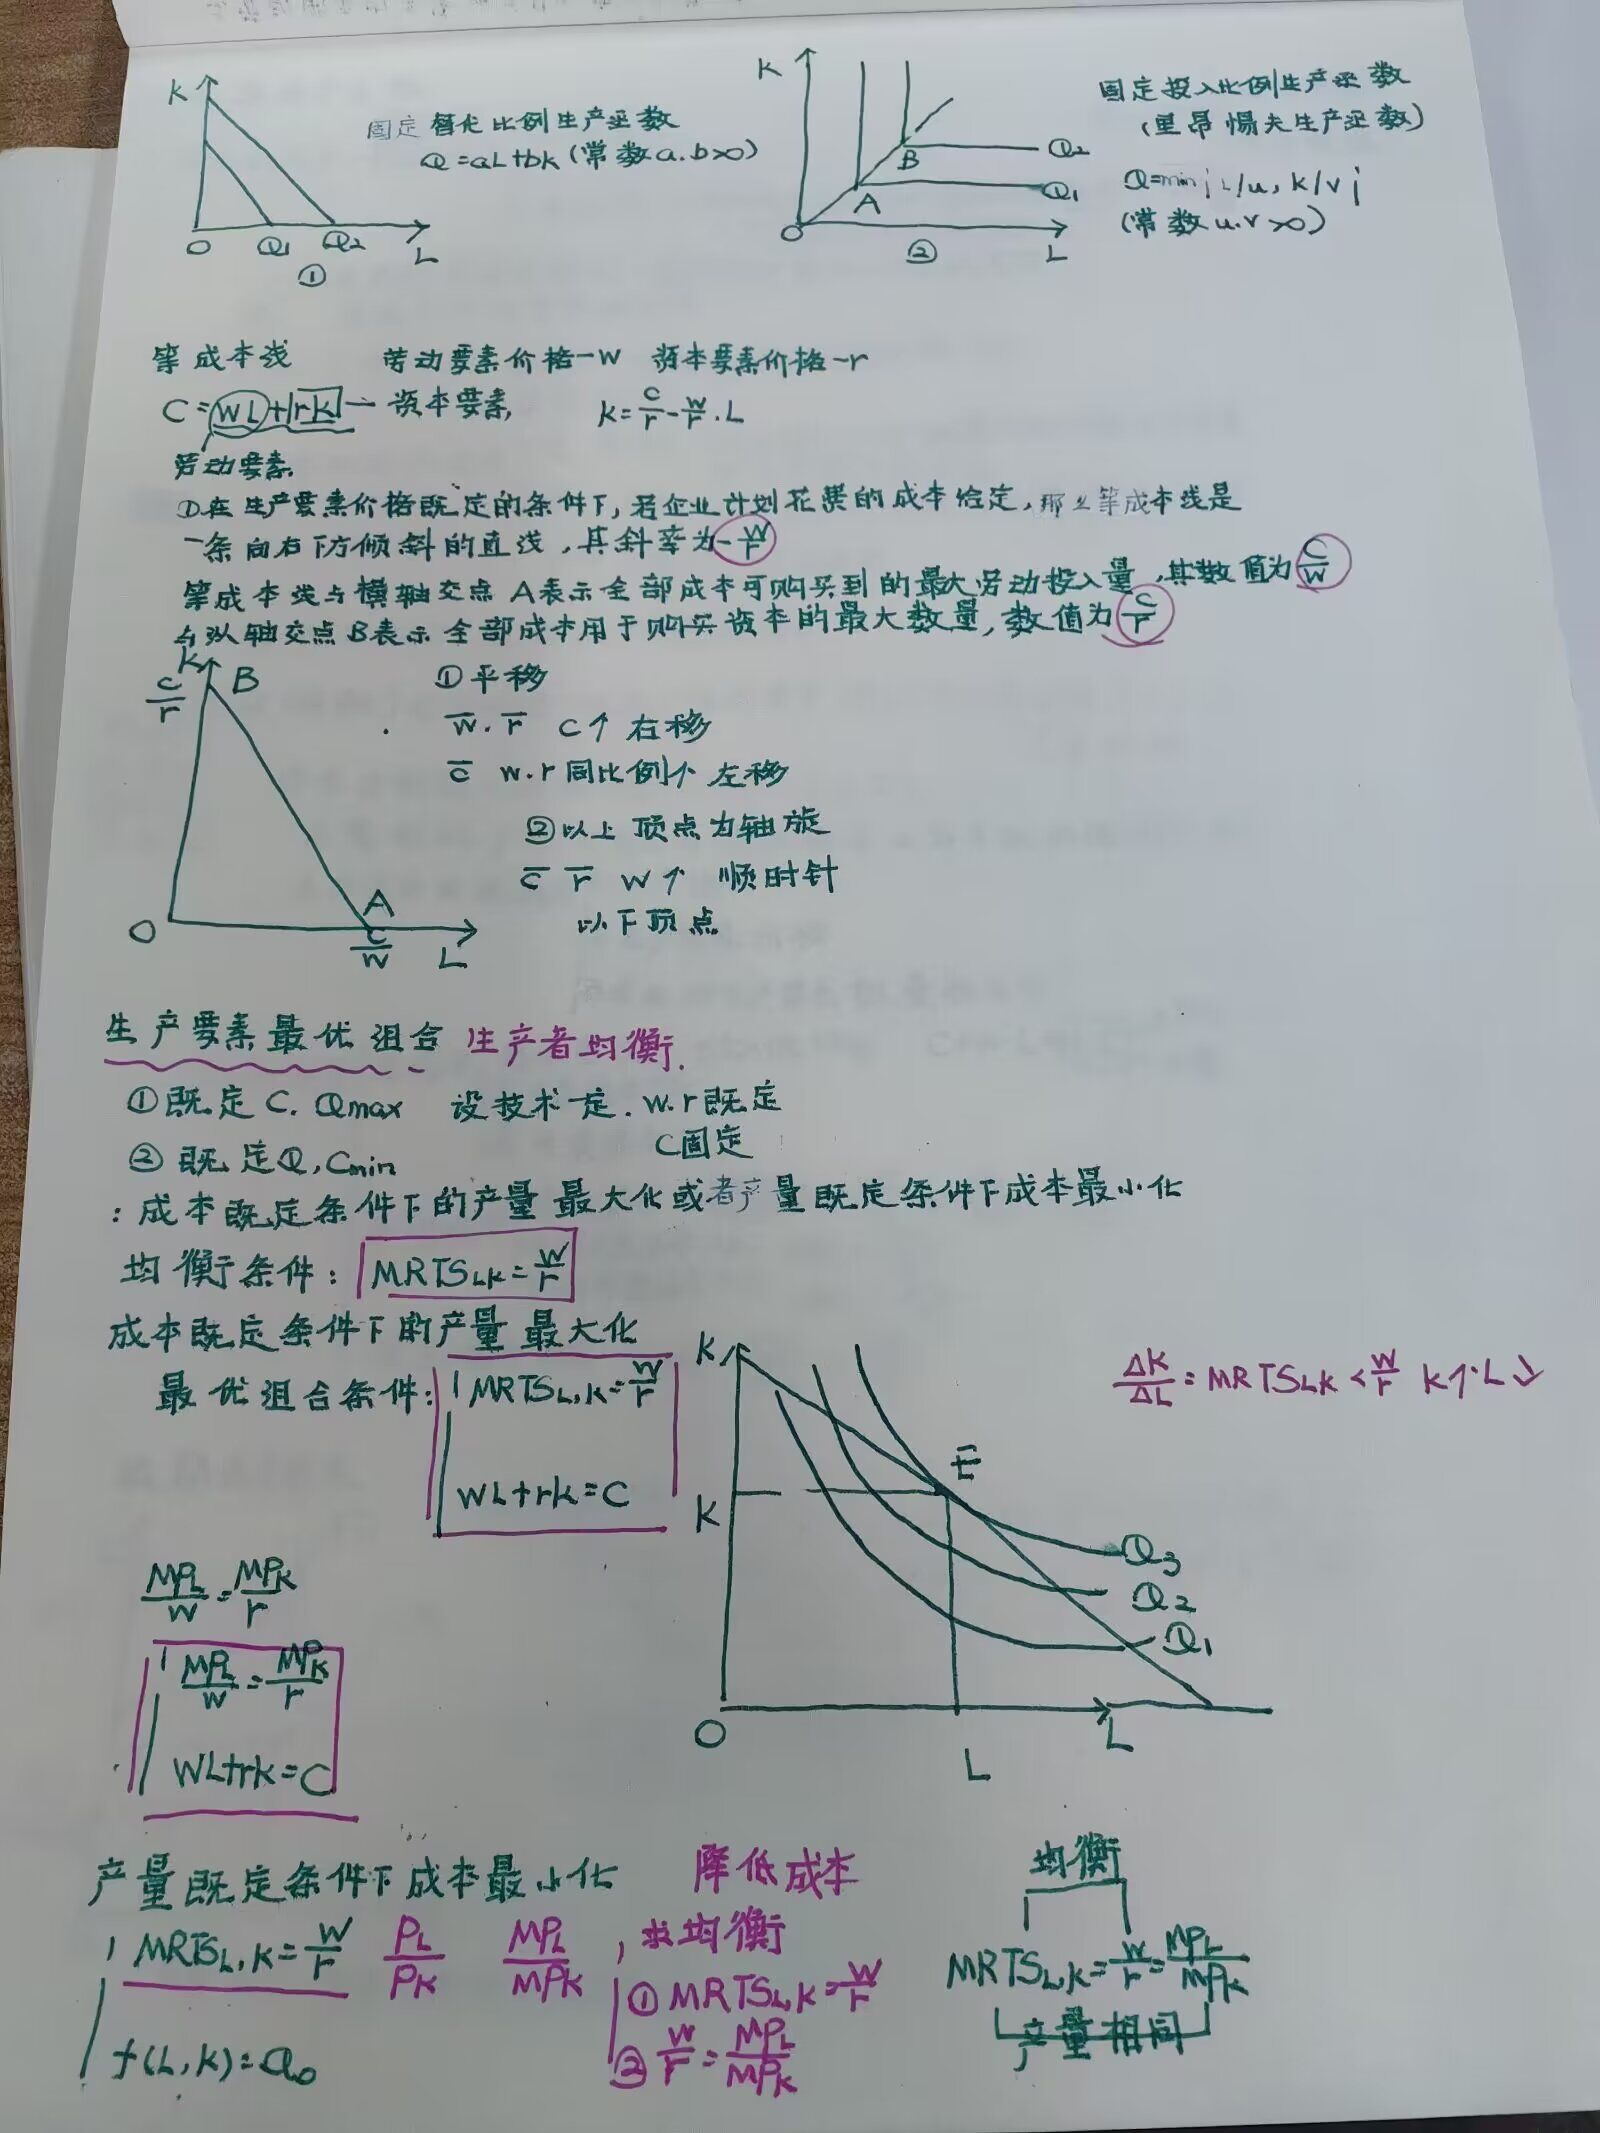 K
固定替代比例生产函数
Q=aL+bK(常数a.b>0)
O Q1 Q2 L
①
K
Q2
B
Q1
A
O L
②
固定投入比例生产函数
(里昂惕夫生产函数)
Q=min{L/u, K/v}
(常数u.v>0)
等成本线 劳动要素价格-w 资本要素价格-r
C=wL+rK-资本要素 K=C/r-w/r·L
劳动要素
①在生产要素价格既定的条件下,若企业计划花费的成本给定,那么等成本线是
一条向右下方倾斜的直线,其斜率为-w/r
等成本线与横轴交点A表示全部成本可购买到的最大劳动投入量,其数值为C/w
与纵轴交点B表示全部成本用于购买资本的最大数量,数值为C/r
K
C/r B
O A
C/w L
①平移
w̅.r̅ C↑ 右移
c̅ w.r同比例↑ 左移
②以上顶点为轴旋
c̅ r̅ w↑ 顺时针
以下顶点
生产要素最优组合 生产者均衡.
①既定C.Qmax 设技术一定.w.r既定
C固定
②既定Q,Cmin
:成本既定条件下的产量最大化或者产量既定条件下成本最小化
均衡条件: MRTSLK=w/r
成本既定条件下的产量最大化
最优组合条件: MRTSL,K=w/r
wL+rK=C
K
E
K
Q3
Q2
Q1
O L
L
ΔK/ΔL=MRTSLK<w/r K↑·L↓
MPL/w=MPK/r
MPL/w=MPK/r
wL+rK=C
产量既定条件下成本最小化 降低成本
MRTSL,K=w/r PL/PK MPL/MPK,求均衡
f(L,K)=Q0
①MRTSL,K=w/r
②w/r=MPL/MPK
均衡
MRTSL,K=w/r=MPL/MPK
产量相同